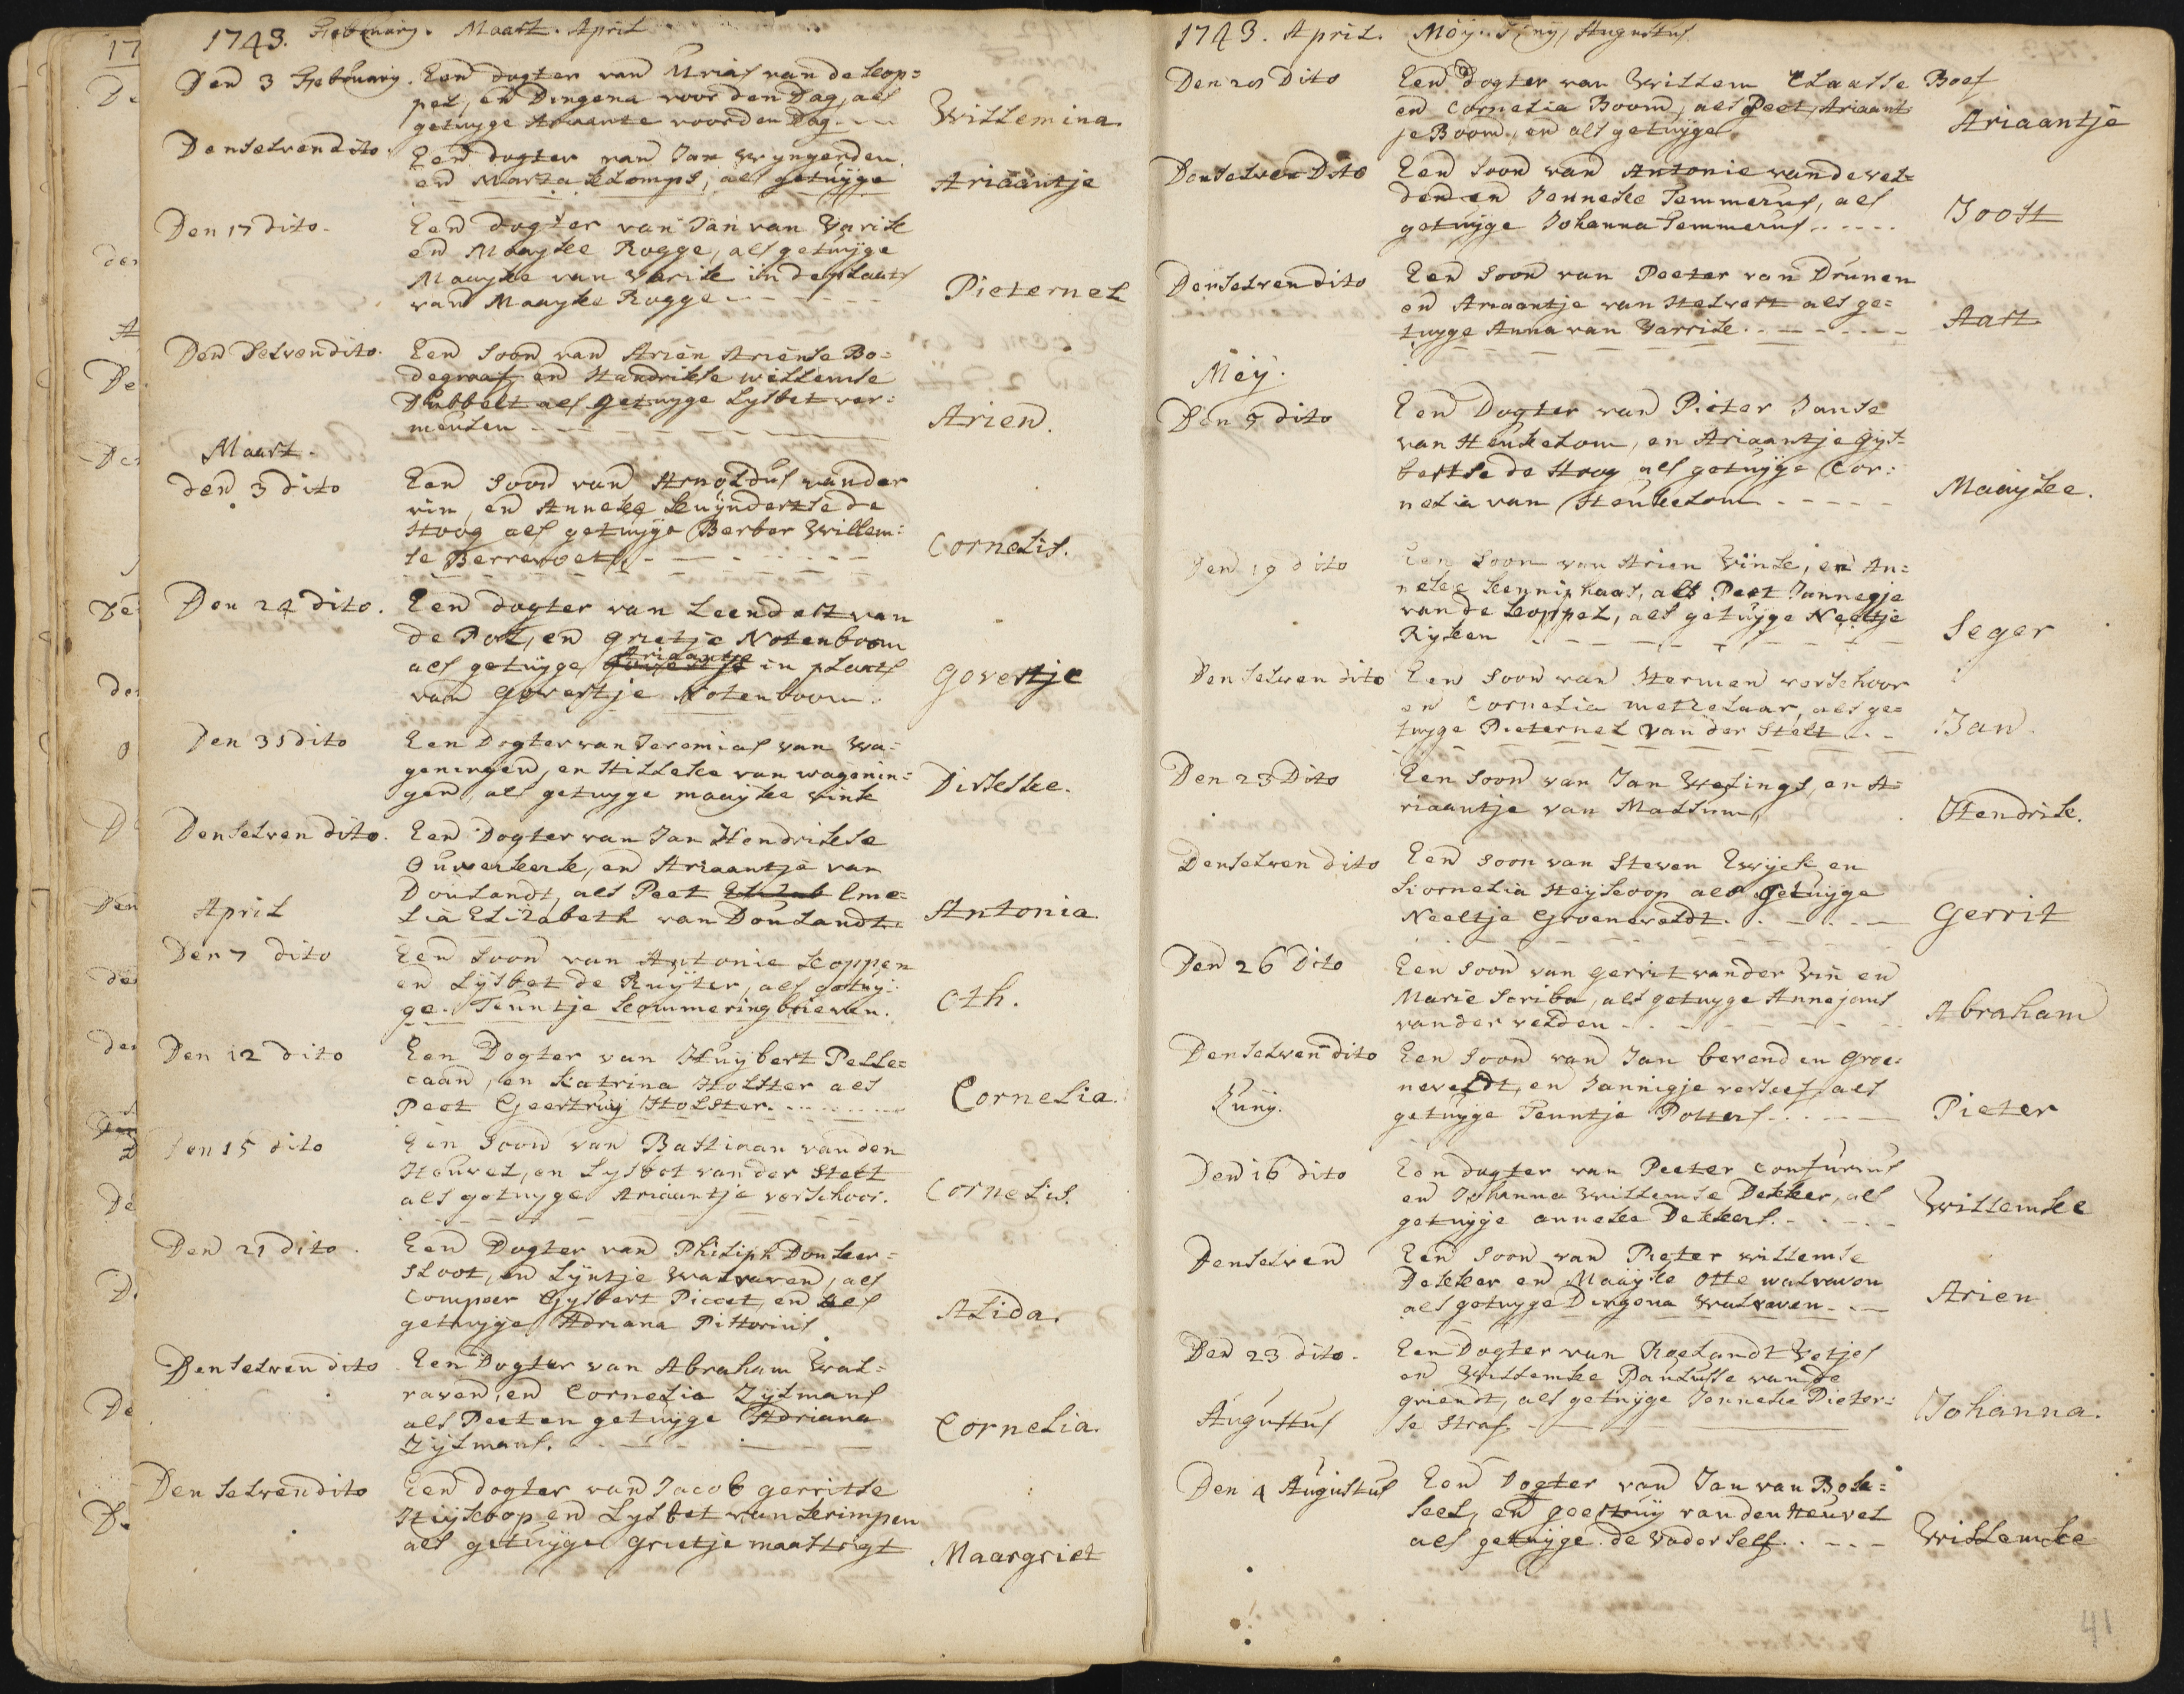 1743. February. Maart. April
Den 3 February. Een dogter van Urias van de Kop=
pel, en Dingena voor den Dag, als
getuyge Ariaante voorden Dag. Willemina.
Denselven dito. Een dogter van Jan Wyngerden,
en Maria Klomps, als getuyge Ariaantje
Den 17 dito. Een dogter van Jan van Varik
en Maayke Rogge, als getuyge
Maayke van Varik in de plaats
van Maayke Rogge Pieternel
Den Selven dito. Een soon van Arien Ariense Bo=
degraaf en Handrikse willemse
Dubbelt als getuyge Lysbet ver=
meulen Arien.
Maart.
den 3 dito Een soon van Arnoldus vander
vin, en Anneke Kuyndertse de
Hoog als getuyge Berber Willem=
se Berrevoets Cornelis.
Den 24 dito. Een dogter van Leendert van
de Pol, en Grietje Notenboom
als getuyge Ariaantje in plaats
van Govertje Notenboom. Govertje
Den 31 dito Een Dogter van Jeremias van Wa=
geningen, en Hilleke van wagenin=
gen, als getuyge maayke vink Dirkske.
Denselven dito. Een Dogter van Jan Hendrikse
Ouwerkerk, en Ariaantje van
Doulandt, als Peet Eme=
lia Elizabeth van Doulandt. Antonia.
April
Den 7 dito Een soon van Antonie Koppen
en Lysbet de Ruyter, als getuy=
ge. Teuntje Kommeringbrieven. Oth.
Den 12 dito Een Dogter van Huybert Pelle=
caan, en Katrina Holster als
Peet Geertruy Holster. Cornelia.
Den 15 dito Een soon van Bastiaan van den
Heuvel, en Lysbet van der Stelt
als getuyge Ariaantje verschoor. Cornelis.
Den 21 dito. Een Dogter van Philiph Donker=
sloot, en Lyntje Walraven, als
Compeer Gysbert Piccet, en als
getuyge Adriana Pistorius Alida.
Denselven dito Een Dogter van Abraham Wal=
raven, en Cornelia Zylmans
als Peet en getuyge Adriana
Zylmans. Cornelia.
Den selven dito Een dogter van Jacob gerritse
Heykoop en Lysbet van Krimpen
als getuyge grietje maastrigt Maargriet
1743. April. Mey. Juny, Augustus
Den 28 Dito Een dogter van Willem Claasse Boef
en Cornelia Boom, als Peet, Ariaant
je Boom, en als getuyge Ariaantje
Denselven Dito Een soon van Antonie vande vel=
den en Jenneke Temmerus, als
getuyge Johanna Temmerus Joost
Denselven dito Een soon van Peeter van Drunen
en Ariaantje van Helvert als ge=
tuyge Anna van Varrik. Aart
Mey.
Den 5 dito Een Dogter van Pieter Janse
van Heukelom, en Ariaantje Gys=
bertse de Hoog als getuyge Cor=
nelia van Heukelom Maayke.
Den 19 dito Een soon van Arien Vink, en An=
neke Kenniphaas, als Peet Jannegje
van de Koppel, als getuyge Neeltje
Ryken Seger
Den selven dito Een soon van Hermen verschoor
en Cornelia metzelaar, als ge=
tuyge Pieternel van der Stelt Jan.
Den 23 Dito Een soon van Jan Welings, en A=
riaantje van Mallum Hendrik.
Denselven dito Een soon van Steven Ewyck en
Kornelia Heykoop als getuyge
Neeltje Groeneveldt. Gerrit
Den 26 dito Een soon van gerrit vander Vin en
Marie Scriba, als getuyge Anne jans
vander velden Abraham
Denselven dito Een soon van Jan berend en Groe=
neveldt, en Jannigje verkerf, als
getuyge Teuntje Potters Pieter
Juny.
Den 16 dito Een dogter van Peeter Confurius
en Johanna Willemse Dekker, als
getuyge anneke Dekkers. Willemke
Denselven Een soon van Pieter willemse
Dekker en Maayke Otte walraven
als getuyge Dingena Walraven Arien
Den 23 dito. Een Dogter van Roelandt Vetjes
en Willemke Paulusse van de
griendt, als getuyge Jenneke Pieter=
se Straf. Johanna.
Augustus
Den 4 Augustus Een Dogter van Jan van Bok=
sel, en geertruy van den Heuvel
als getuyge de Vader self. Willemke
41